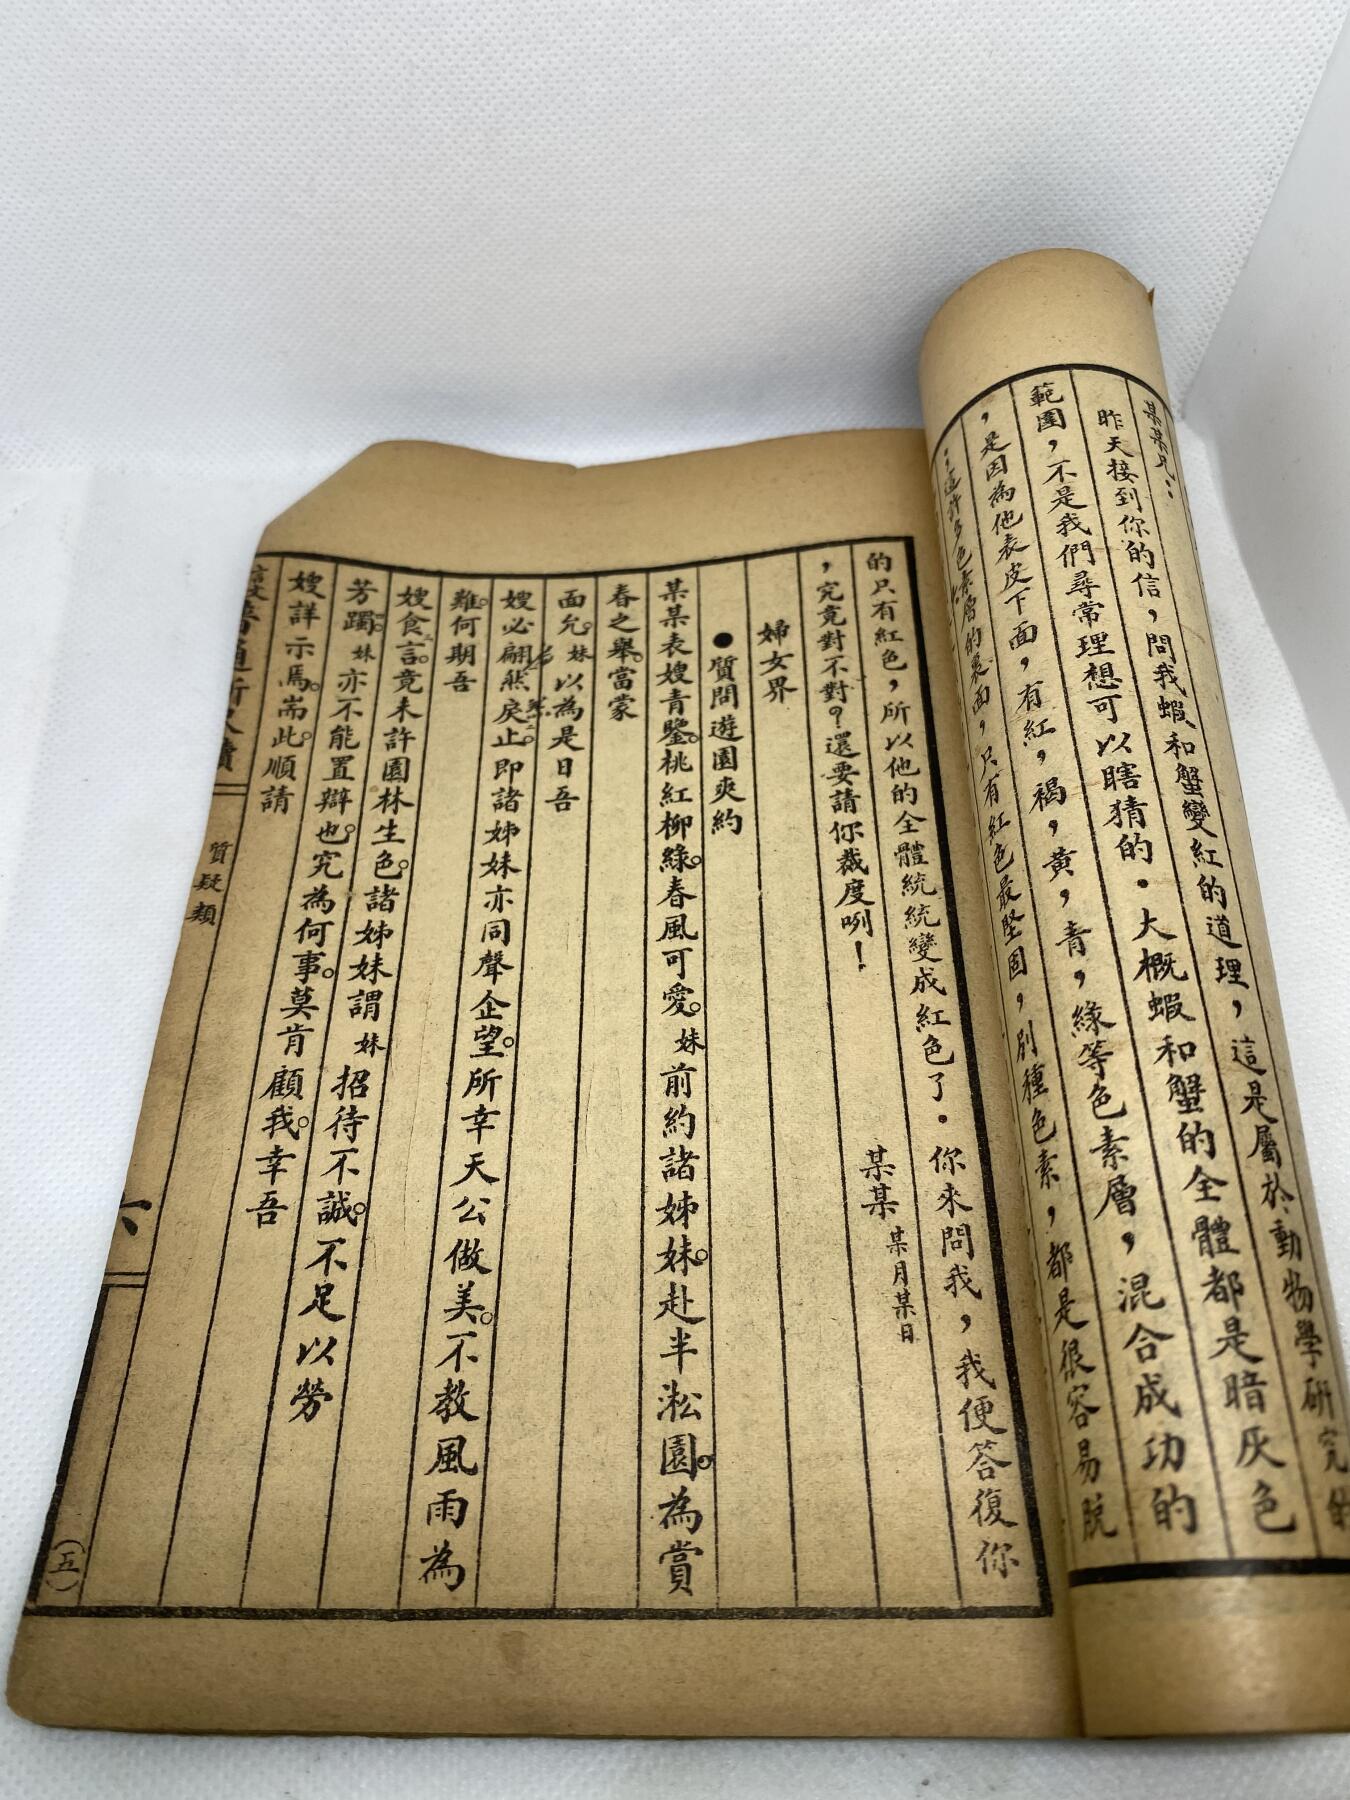 某某兄：
昨天接到你的信，問我蝦和蟹變紅的道理，這是屬於動物學研究的
範圍，不是我們尋常理想可以瞎猜的．大概蝦和蟹的全體都是暗灰色
，是因為他表皮下面，有紅，褐，黃，青，緣等色素層，混合成功的
；這許多色素層的裏面，只有紅色最堅固，別種色素，都是很容易脫
的只有紅色，所以他的全體統統變成紅色了．你來問我，我便答復你
，究竟對不對？還要請你裁度咧！
某某 某月某日
婦女界
●質問遊園爽約
某某表嫂青鑒。桃紅柳綠。春風可愛。妹前約諸姊妹。赴半淞園。為賞
春之舉。當蒙
面允。妹以為是日吾
嫂必翩然戾止。即諸姊妹亦同聲企望。所幸天公做美。不教風雨為
難。何期吾
嫂食言。竟未許園林生色。諸姊妹謂妹招待不誠。不足以勞
芳躅。妹亦不能置辯也。究為何事。莫肯顧我。幸吾
嫂詳示焉。耑此。順請
質疑類
六
（五）